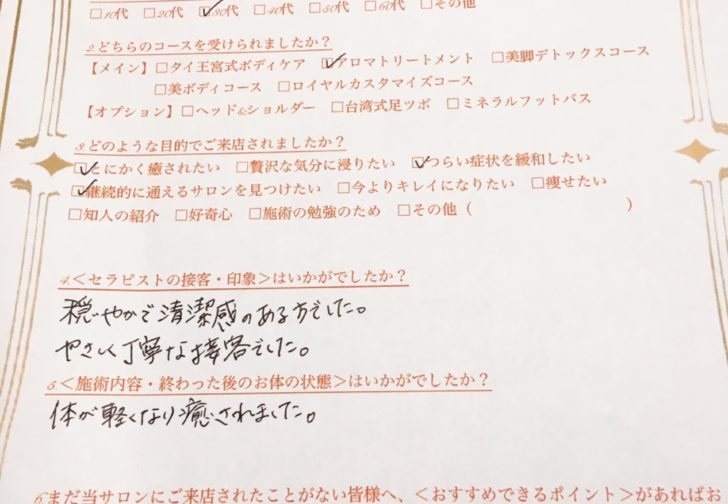 □10代 □20代 ☑30代 □40代 □50代 □60代 □その他
2.どちらのコースを受けられましたか？
【メイン】□タイ王宮式ボディケア ☑アロマトリートメント □美脚デトックスコース
□美ボディコース □ロイヤルカスタマイズコース
【オプション】□ヘッド&ショルダー □台湾式足ツボ □ミネラルフットバス
3.どのような目的でご来店されましたか？
☑とにかく癒されたい □贅沢な気分に浸りたい ☑つらい症状を緩和したい
☑継続的に通えるサロンを見つけたい □今よりキレイになりたい □痩せたい
□知人の紹介 □好奇心 □施術の勉強のため □その他（ ）
4.＜セラピストの接客・印象＞はいかがでしたか？
穏やかで清潔感のある方でした。
やさしく丁寧な接客でした。
5.＜施術内容・終わった後のお体の状態＞はいかがでしたか？
体が軽くなり癒されました。
6.まだ当サロンにご来店されたことがない皆様へ、＜おすすめできるポイント＞があればお